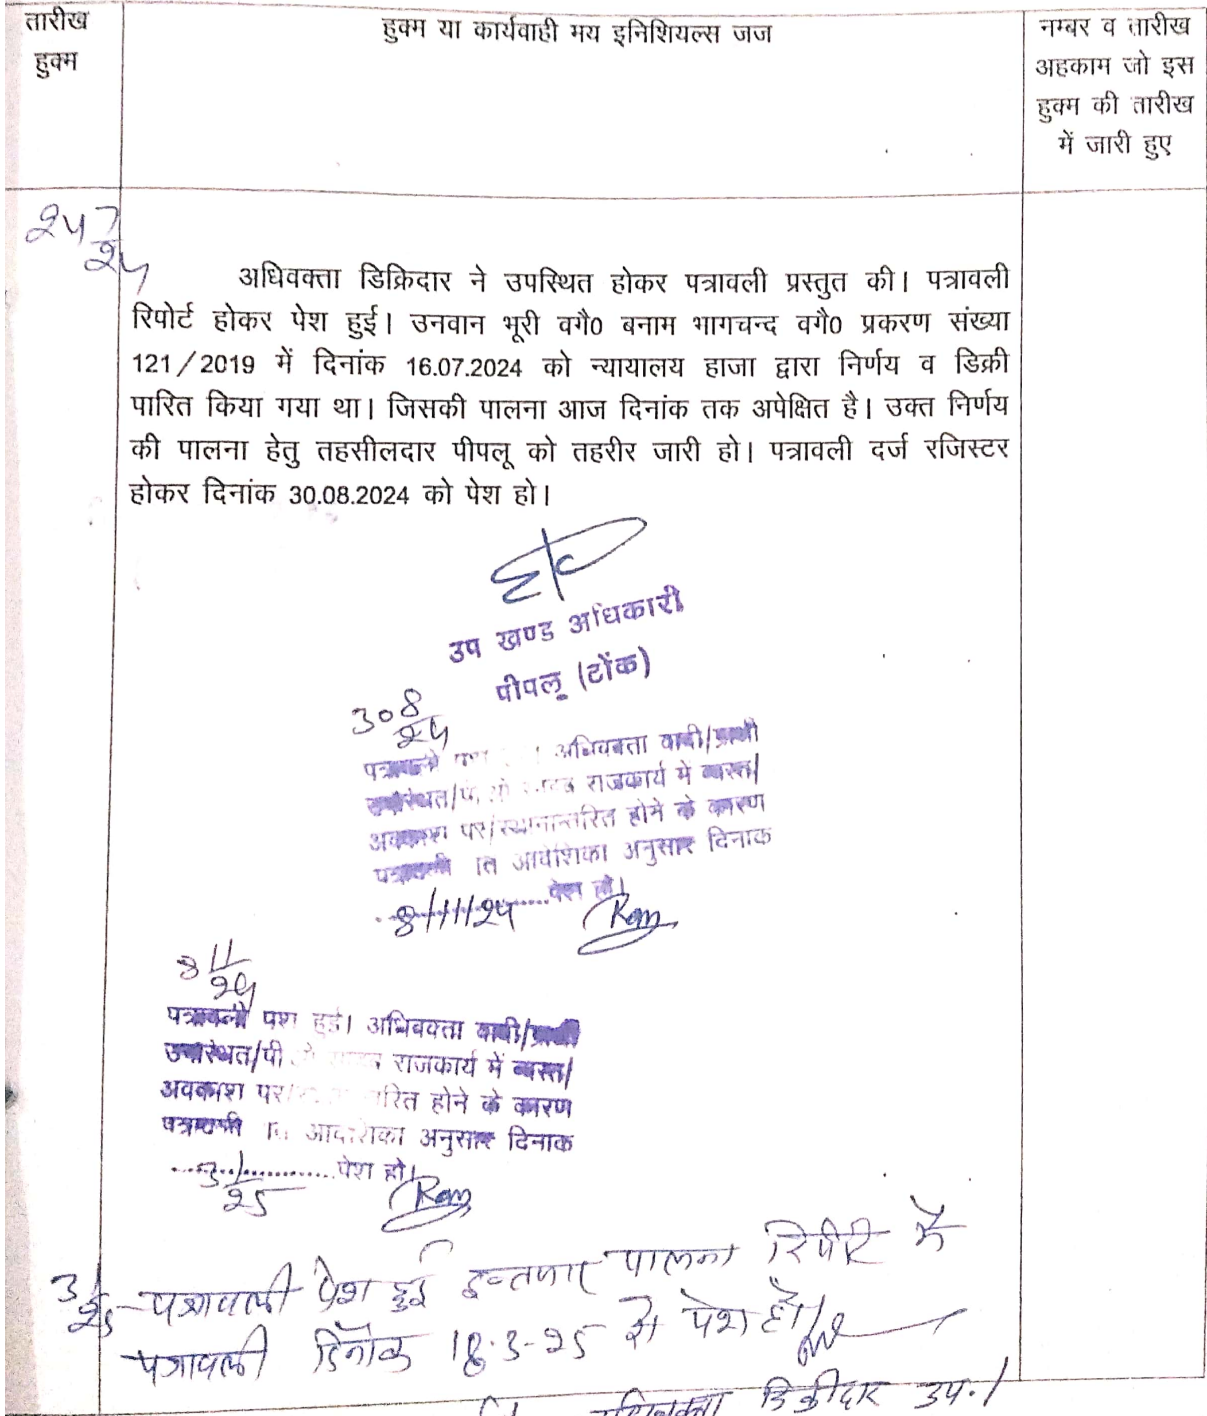 तारीख
हुक्म
हुक्म या कार्यवाही मय इनिशियल्स जज
नम्बर व तारीख
अहकाम जो इस
हुक्म की तारीख
में जारी हुए
24 7/24
अधिवक्ता डिक्रिदार ने उपस्थित होकर पत्रावली प्रस्तुत की। पत्रावली
रिपोर्ट होकर पेश हुई। उनवान भूरी वगै0 बनाम भागचन्द वगै0 प्रकरण संख्या
121/2019 में दिनांक 16.07.2024 को न्यायालय हाजा द्वारा निर्णय व डिक्री
पारित किया गया था। जिसकी पालना आज दिनांक तक अपेक्षित है। उक्त निर्णय
की पालना हेतु तहसीलदार पीपलू को तहरीर जारी हो। पत्रावली दर्ज रजिस्टर
होकर दिनांक 30.08.2024 को पेश हो।
उप खण्ड अधिकारी
पीपलू (टोंक)
30 8/24
पत्रावली अधिवक्ता वादी/प्रार्थी
उपस्थित/पी. राजकार्य में व्यस्त/
अवकाश पर/स्थानान्तरित होने के कारण
पत्रावली आदेशिका अनुसार दिनाक
8/11/24 पेश हो।
Ram
8 11/24
पत्रावली पेश हुई। अधिवक्ता वादी/प्रार्थी
उपस्थित/पी राजकार्य में व्यस्त/
अवकाश पर/ होने के कारण
पत्रावली आदेशिका अनुसार दिनाक
3 1/25 पेश हो।
Ram
3 1/25 - पत्रावली पेश हुई इन्तजार पालना रिपोर्ट में
पत्रावली दिनाँक 18.3-25 को पेश हो।
अधिवक्ता डिक्रीदार उप.।